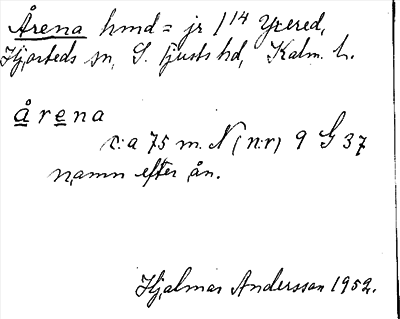 Årena hmd = jr 1¹⁴ Yxered,
Hjorteds sn, S. Tjusts hd, Kalm. l.
årena
c:a 75 m. N (n:r) 9 G 37
namn efter ån.
Hjalmar Andersson 1952.